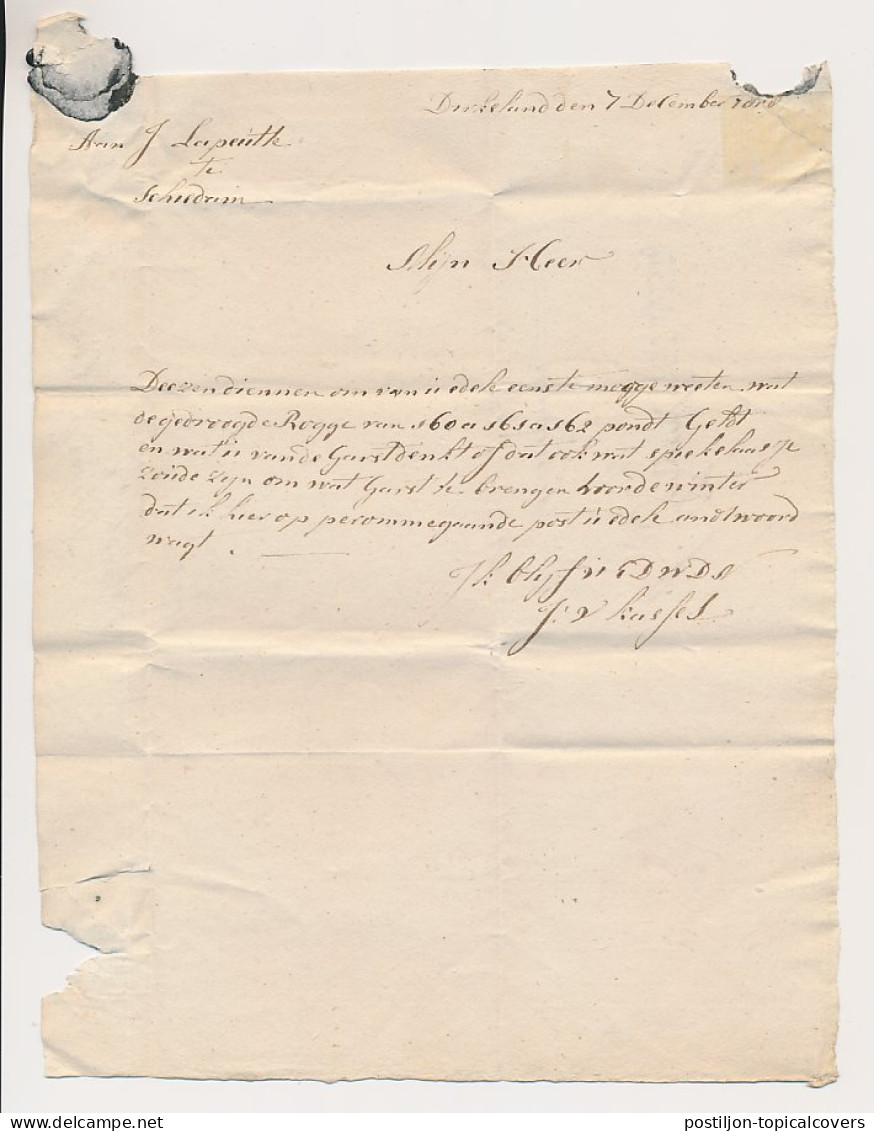 Dirksland den 7 December
Aan J Lapeuth
te
Schiedam
Mijn Heer
Deezen diennen om van u edele eens te mogge weeten wat
de gedroogde Rogge van 160 a 161 a 162 pondt Geldt
en wat u van de Garst denkt of dat ook wat
zoude zyn om wat Garst te brengen voor de winter
dat ik hier op per ommegaande post u edele andtwoord
wagt.
Ik blyf u EDWDr
J: V kassel
postiljon-topicalcovers